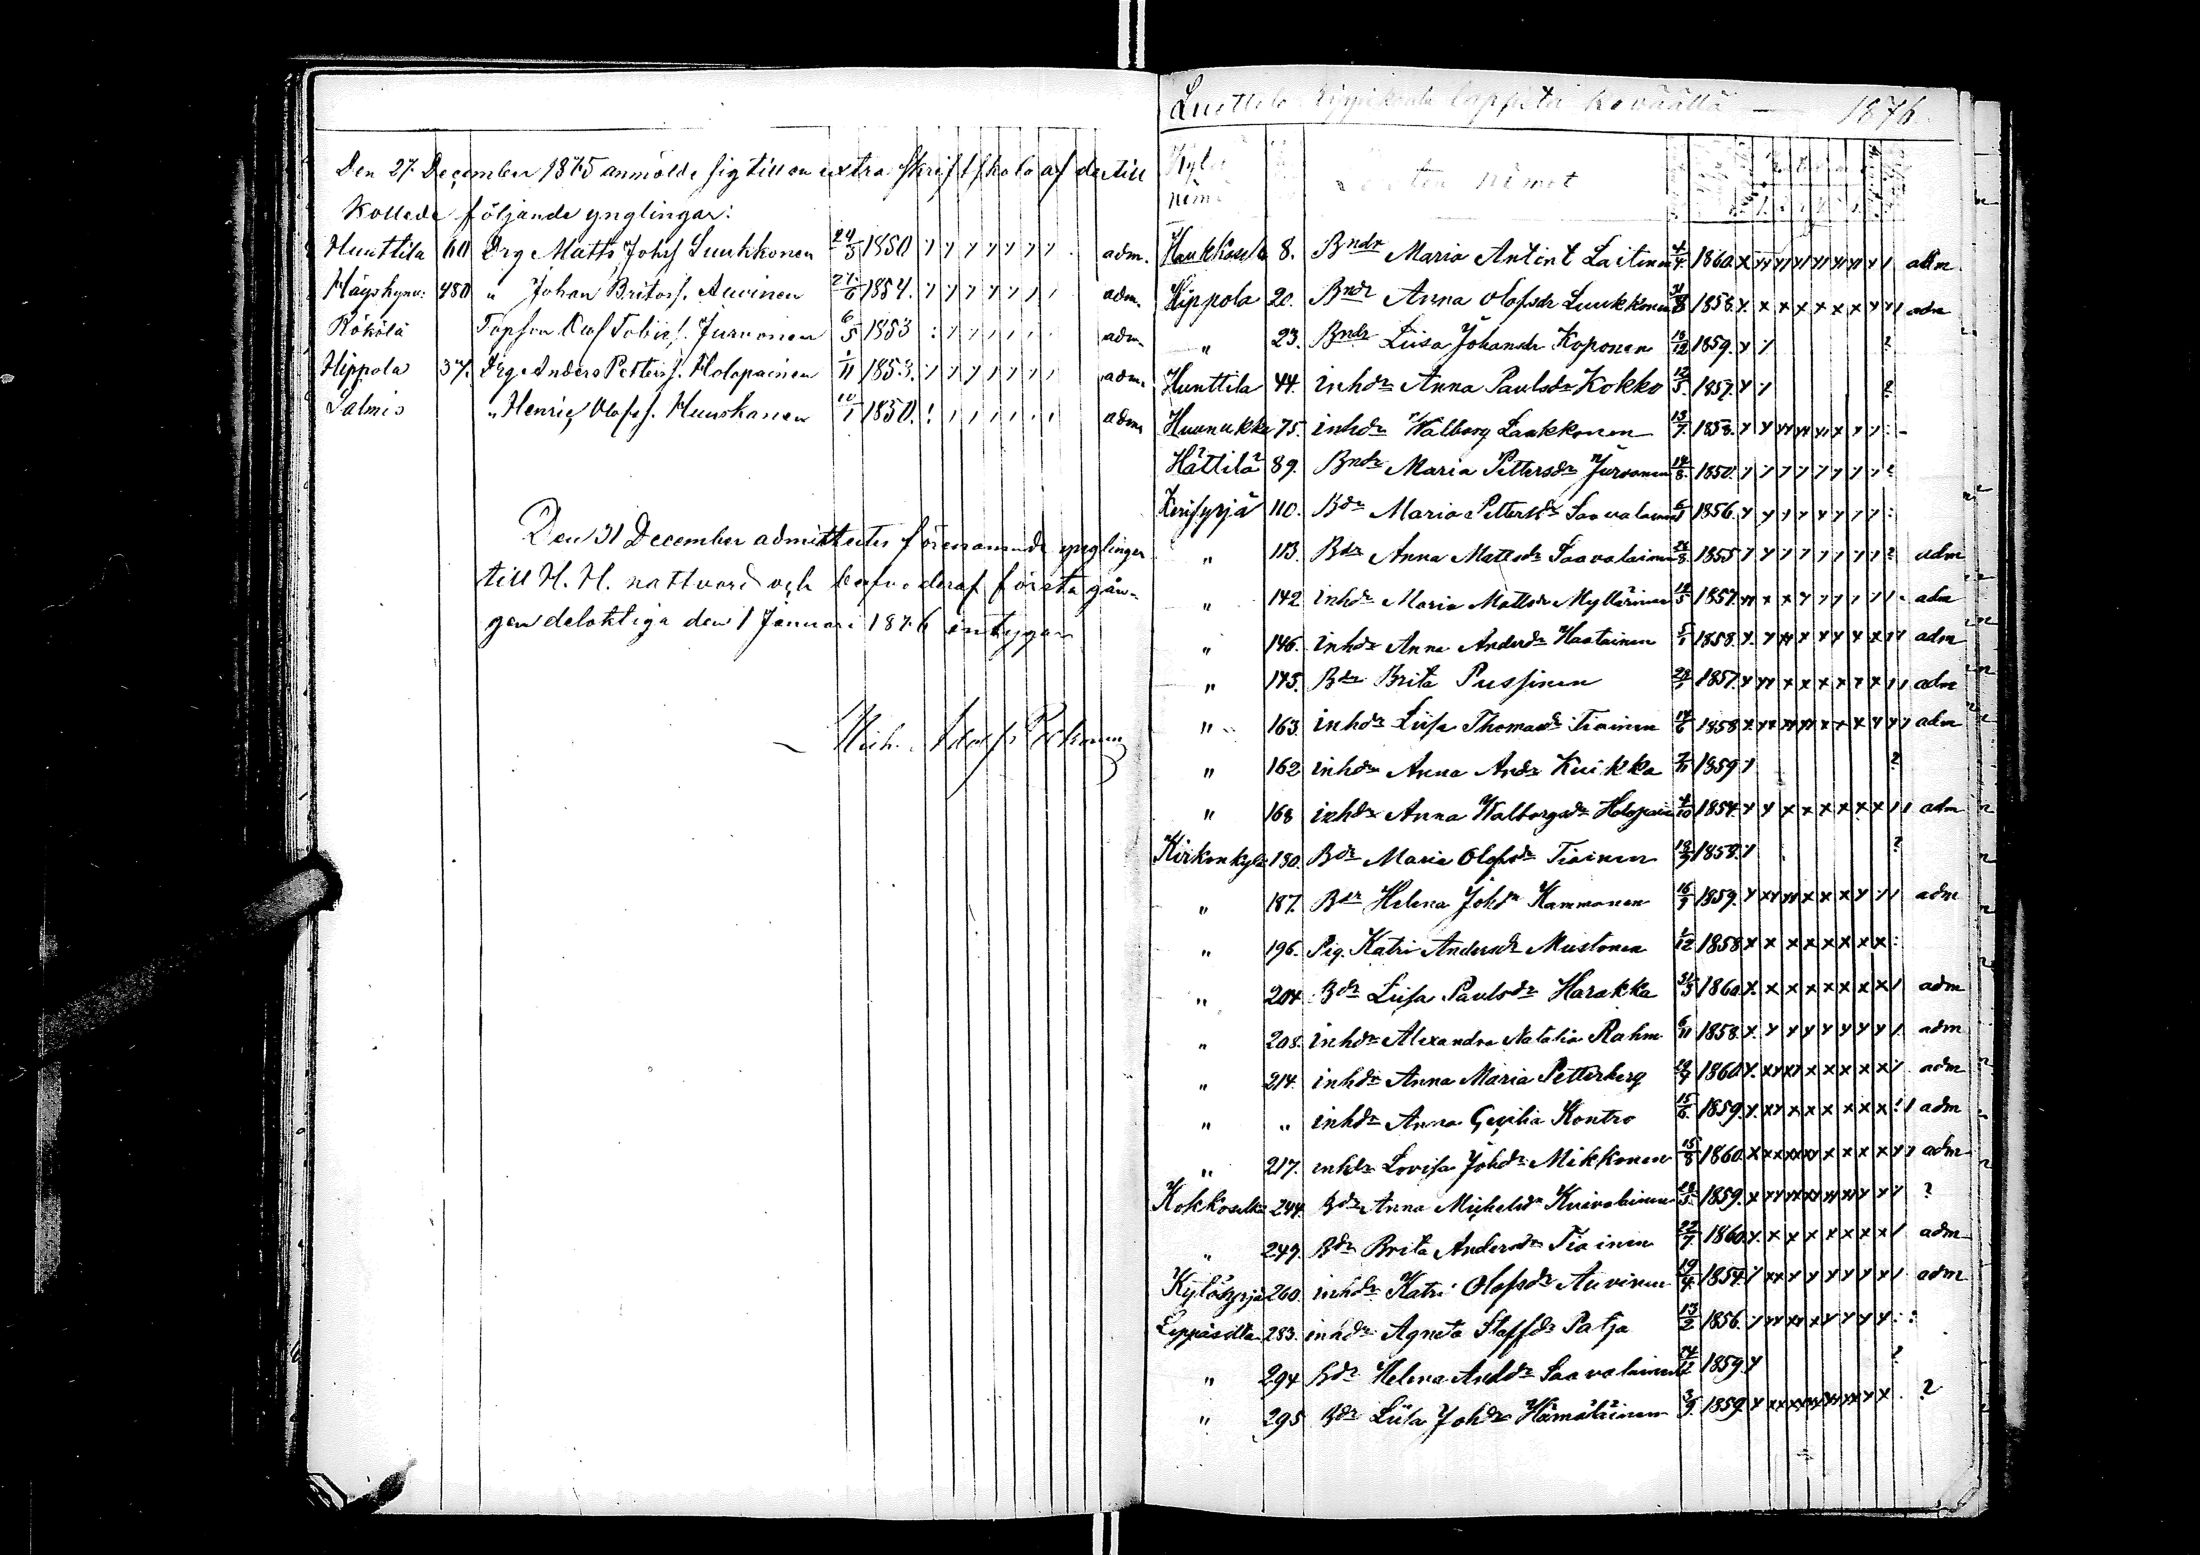 Den 27 December 1875 anmälde sig till en extra skriftskola af dertill
Kallade följande ynglingar:
Hunttila 60 Drg Matts Johss Luukkonen 24/3 1850 adm.
480 " Johan Britas s. Auvinen 27/6 1854. adm.
Rökölä Olof Tobias s. Jurvonen 6/5 1853 adm.
Hippola 37. Drg Anders Petterss. Holopainen 1/11 1853. adm.
Salmis " Henric Olofs s. Muuskonen 10/1 1850. adm
Den 31 December admitterades förenämnde ynglingar
till H. H. nattvard och deraf första gån-
gen delaktiga den 1 Januari 1876 intygar
Mich. Adolf
lapsta keväällä 1876
Kylä nimi nimet
8. Bndr Maria Antint Laitinen 4/4 1860 adm
Hippola 20. Bndr Anna Olofsdr Luukkonen 1858. adm
" 23. Bndr Liisa Johansdr Koponen 13/12 1859. ?
Hunttila 44. inhdr Anna Paulsdr Kokko 12/5 1857. ?
Huunukka 75. inhdr Walborg Laukkonen 13/7 1858.
Hättilä 89. Bndr Maria Pettersdr Jurvonen 14/8 1850. ?
Kerisyrjä 110. Bdr Maria Pettersdr Saavalainen 1856.
" 113. Bdr Anna Mattsdr Saavalainen 1855 ? adm
" 142 inhdr Maria Mattsdr Myllärinen 1857. adm
" 146. inhdr Anna Andersdr Haatainen 5/1 1858. adm
" 145. Bdr Brita Pussinen 1857. adm
" 163. inhdr Liisa Thomasdr Tiainen 14/6 1858 adm
" 162 inhdr Anna Andr Kuikka 7/11 1859 ?
" 168 inhdr Anna Walborgsdr Holopain 4/10 1854. adm
Kirkonkylä 180. Bdr Maria Olofsdr Tiainen 1858. ?
" 187. Bdr Helena Johdr Kammonen 16/9 1859. adm
" 196. Pig. Katri Andersdr Mustonen 1/12 1858
" 204. Bdr Liisa Paulsdr Harakka 31/3 1860. adm
" 208. inhdr Alexandra Natalia Rahm 6/11 1858. adm
" 214. inhdr Anna Maria Petterberg 1860. adm
" " inhdr Anna Cecilia Kontro 15/6 1859. adm
" 217. inhdr Lovisa Johdr Mikkonen 15/8 1860. adm
Kokkoselkä 244. Bdr Anna Michelsdr Kuivalainen 1859. ?
" 249. Bdr Brita Andersdr Tiainen 1860. adm
Kylösyrjä 260. inhdr Katri Olofsdr Auvinen 19/4 1854. adm
Leppäsilta 283. inhdr Agneta Staffdr Patja 13/2 1856.
" 294 Bdr Helena Anddr Saavalainen 24/12 1859 ?
" 295 Bdr Liisa Johdr Hämäläinen 3/9 1859 ?